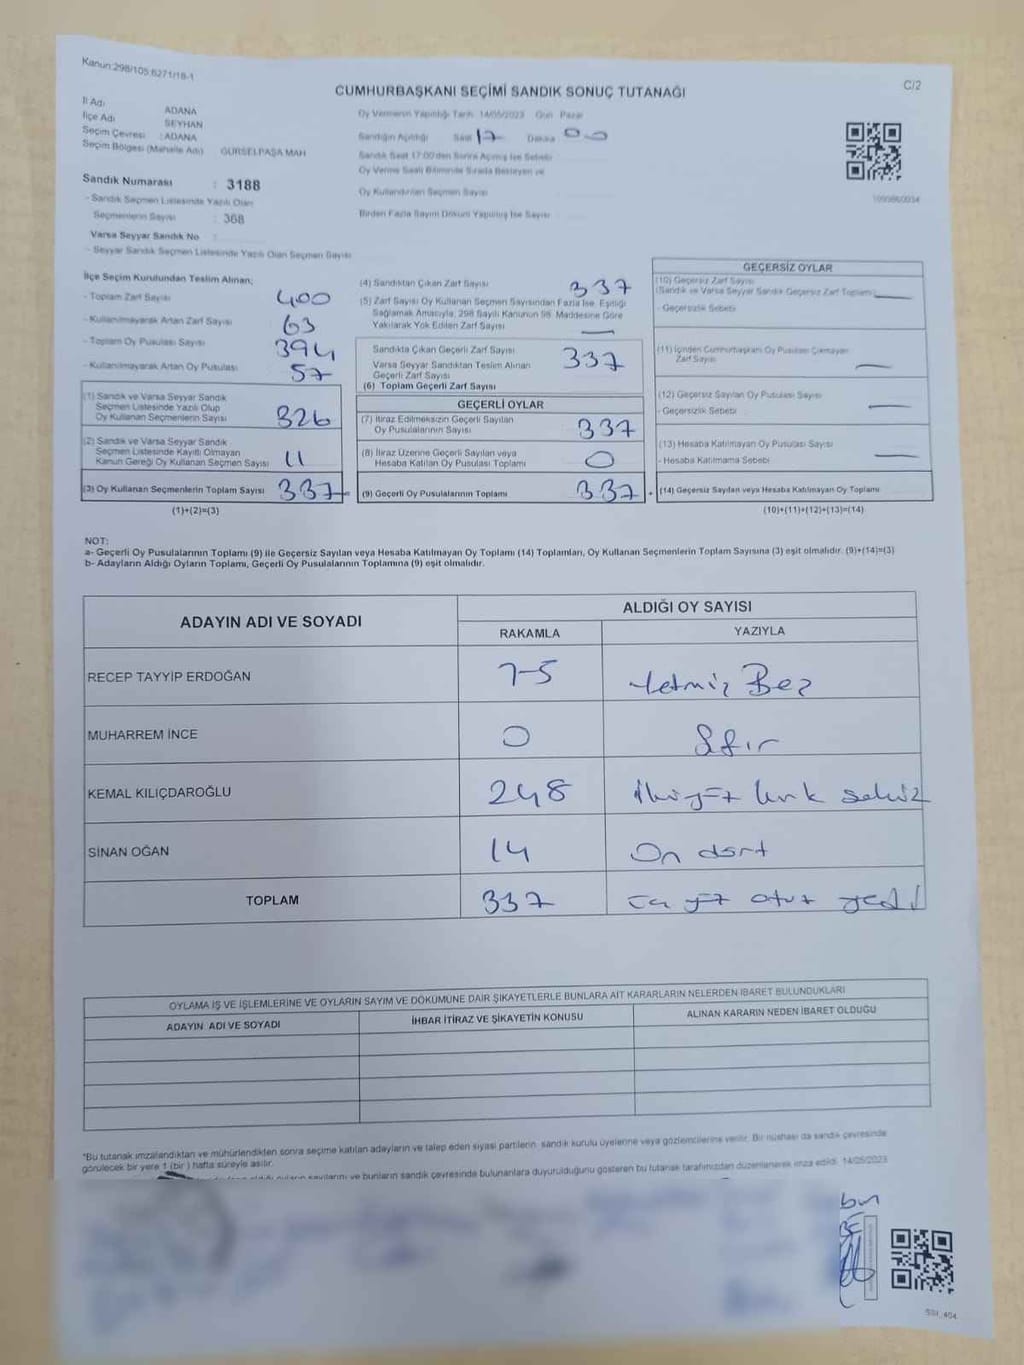 Kanun:298/105.6271/18-1
CUMHURBAŞKANI SEÇİMİ SANDIK SONUÇ TUTANAĞI
C/2
İl Adı ADANA
İlçe Adı SEYHAN
Seçim Çevresi : ADANA
Seçim Bölgesi (Mahalle Adı) GÜRSELPAŞA MAH
Sandık Numarası : 3188
- Sandık Seçmen Listesinde Yazılı Olan
Seçmenlerin Sayısı : 368
Varsa Seyyar Sandık No :
- Seyyar Sandık Seçmen Listesinde Yazılı Olan Seçmen Sayısı
Oy Vermenin Yapıldığı Tarih 14/05/2023 Gün Pazar
Sandığın Açıldığı Saat 17 Dakika 00
Sandık Saat 17:00'den Sonra Açılmış İse Sebebi
Oy Verme Saati Bitiminde Sırada Bekleyen ve
Oy Kullandırılan Seçmen Sayısı
Birden Fazla Sayım Döküm Yapılmış İse Sayısı
İlçe Seçim Kurulundan Teslim Alınan;
- Toplam Zarf Sayısı 400
- Kullanılmayarak Artan Zarf Sayısı 63
- Toplam Oy Pusulası Sayısı 394
- Kullanılmayarak Artan Oy Pusulası 57
(1) Sandık ve Varsa Seyyar Sandık
Seçmen Listesinde Yazılı Olup
Oy Kullanan Seçmenlerin Sayısı 326
(2) Sandık ve Varsa Seyyar Sandık
Seçmen Listesinde Kayıtlı Olmayan
Kanun Gereği Oy Kullanan Seçmen Sayısı 11
(3) Oy Kullanan Seçmenlerin Toplam Sayısı 337
(1)+(2)=(3)
(4) Sandıktan Çıkan Zarf Sayısı 337
(5) Zarf Sayısı Oy Kullanan Seçmen Sayısından Fazla İse, Eşitliği
Sağlamak Amacıyla, 298 Sayılı Kanunun 98. Maddesine Göre
Yakılarak Yok Edilen Zarf Sayısı —
Sandıkta Çıkan Geçerli Zarf Sayısı 337
Varsa Seyyar Sandıktan Teslim Alınan
Geçerli Zarf Sayısı
(6) Toplam Geçerli Zarf Sayısı
GEÇERLİ OYLAR
(7) İtiraz Edilmeksizin Geçerli Sayılan
Oy Pusulalarının Sayısı 337
(8) İtiraz Üzerine Geçerli Sayılan veya
Hesaba Katılan Oy Pusulası Toplamı 0
(9) Geçerli Oy Pusulalarının Toplamı 337
GEÇERSİZ OYLAR
(10) Geçersiz Zarf Sayısı
(Sandık ve Varsa Seyyar Sandık Geçersiz Zarf Toplamı) —
- Geçersizlik Sebebi
(11) İçinden Cumhurbaşkanı Oy Pusulası Çıkmayan
Zarf Sayısı —
(12) Geçersiz Sayılan Oy Pusulası Sayısı
- Geçersizlik Sebebi —
(13) Hesaba Katılmayan Oy Pusulası Sayısı
- Hesaba Katılmama Sebebi —
+ (14) Geçersiz Sayılan veya Hesaba Katılmayan Oy Toplamı
(10)+(11)+(12)+(13)=(14)
NOT:
a- Geçerli Oy Pusulalarının Toplamı (9) ile Geçersiz Sayılan veya Hesaba Katılmayan Oy Toplamı (14) Toplamları, Oy Kullanan Seçmenlerin Toplam Sayısına (3) eşit olmalıdır. (9)+(14)=(3)
b- Adayların Aldığı Oyların Toplamı, Geçerli Oy Pusulalarının Toplamına (9) eşit olmalıdır.
ADAYIN ADI VE SOYADI ALDIĞI OY SAYISI
RAKAMLA YAZIYLA
RECEP TAYYİP ERDOĞAN 75 Yetmiş Beş
MUHARREM İNCE 0 Sıfır
KEMAL KILIÇDAROĞLU 248 İkiyüz kırk sekiz
SİNAN OĞAN 14 On dört
TOPLAM 337 üç yüz otuz yedi
OYLAMA İŞ VE İŞLEMLERİNE VE OYLARIN SAYIM VE DÖKÜMÜNE DAİR ŞİKAYETLERLE BUNLARA AİT KARARLARIN NELERDEN İBARET BULUNDUKLARI
ADAYIN ADI VE SOYADI İHBAR İTİRAZ VE ŞİKAYETİN KONUSU ALINAN KARARIN NEDEN İBARET OLDUĞU
*Bu tutanak imzalandıktan ve mühürlendikten sonra seçime katılan adayların ve talep eden siyasi partilerin, sandık kurulu üyelerine veya gözlemcilerine verilir. Bir nüshası da sandık çevresinde
görülecek bir yere 1 (bir) hafta süreyle asılır.
sayılarını ve bunların sandık çevresinde bulunanlara duyurulduğunu gösteren bu tutanak tarafımızdan düzenlenerek imza edildi. 14/05/2023